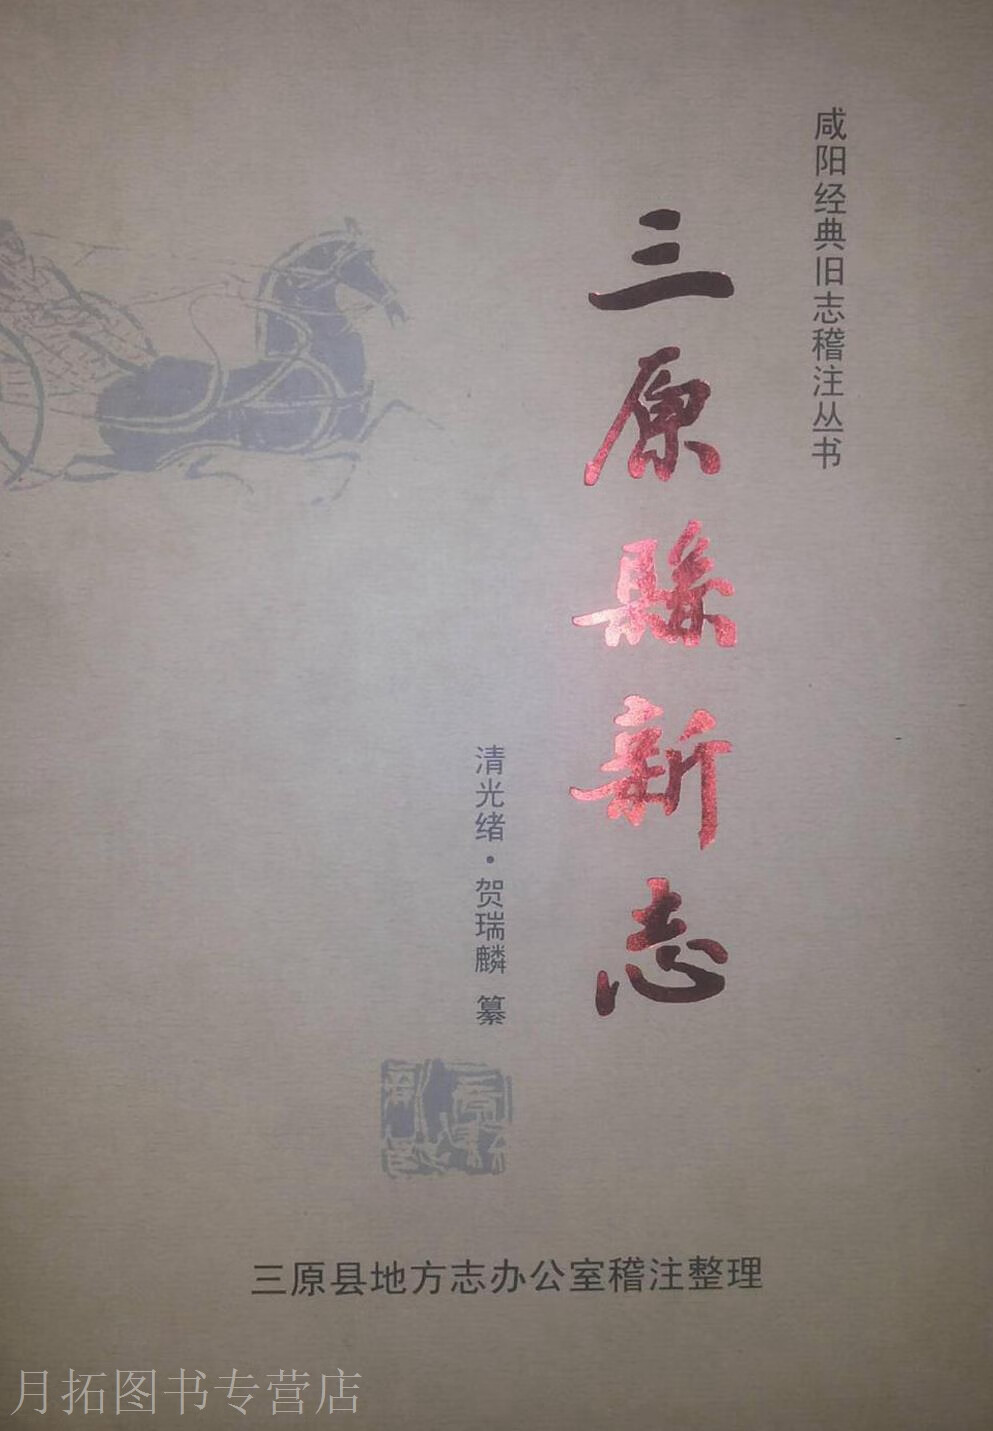 咸阳经典旧志稽注丛书
三原縣新志
清光绪·贺瑞麟 纂
三原县地方志办公室稽注整理
月拓图书专营店